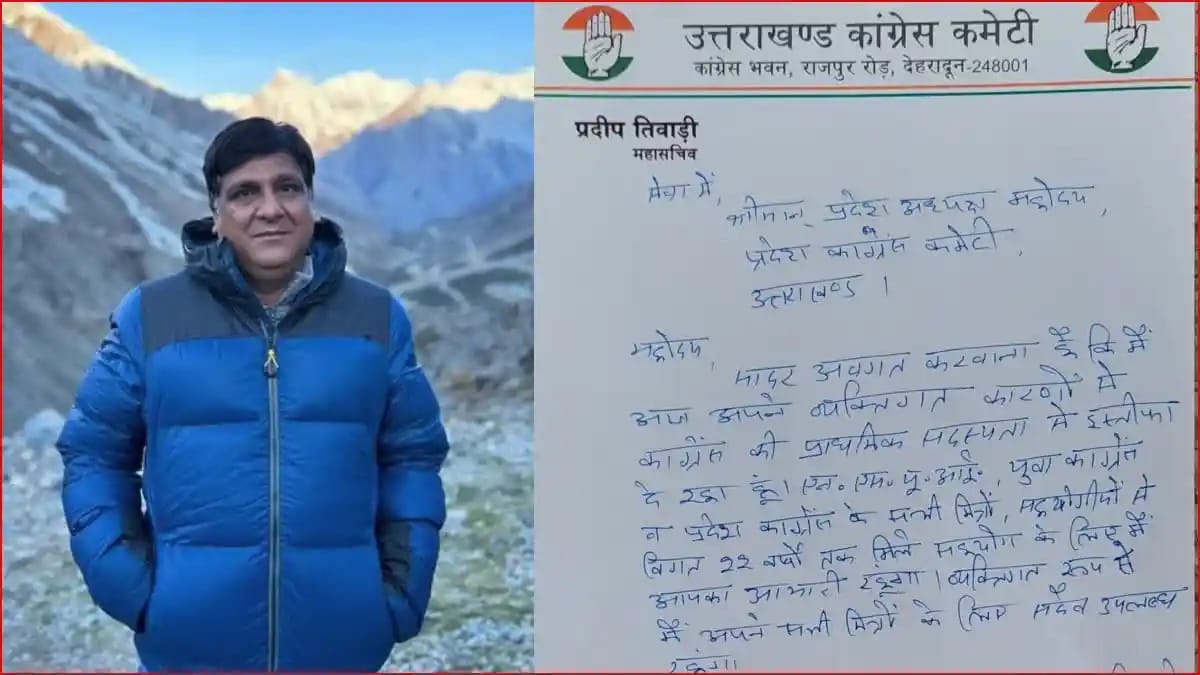 उत्तराखण्ड कांग्रेस कमेटी
कांग्रेस भवन, राजपुर रोड़, देहरादून-248001
प्रदीप तिवाड़ी
महासचिव
सेवा में,
श्रीमान् प्रदेश अध्यक्ष महोदय,
प्रदेश कांग्रेस कमेटी,
उत्तराखण्ड ।
महोदय,
सादर अवगत करवाना है कि मैं
आज अपने व्यक्तिगत कारणों से
कांग्रेस की प्राथमिक सदस्यता से इस्तीफा
दे रहा हूं। एन.एस.यू.आई., युवा कांग्रेस
व प्रदेश कांग्रेस के सभी मित्रों, सहयोगीयों से
विगत 22 वर्षों तक मिले सहयोग के लिए मैं
आपका आभारी रहूंगा । व्यक्तिगत रूप से
मैं अपने सभी मित्रों के लिए सदैव उपलब्ध
रहूंगा।